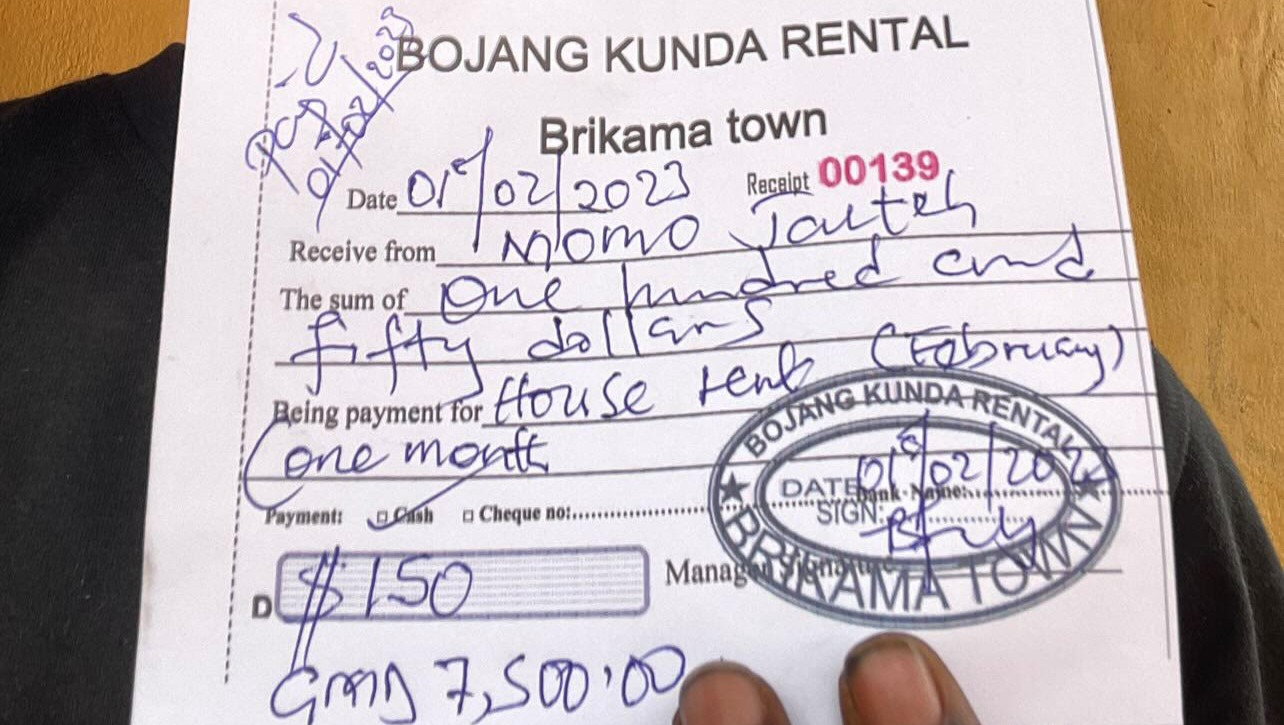 BOJANG KUNDA RENTAL
Brikama town
01/02/2023
Date 01st/02/2023 Receipt 00139
Receive from Momo Jauteh
The sum of One hundred and
fifty dollars
Being payment for House rent (February)
(one month
Payment: Cash Cheque no:
D $150
GMD 7,500.00
BOJANG KUNDA RENTAL
DATE
SIGN:
BRIKAMA TOWN